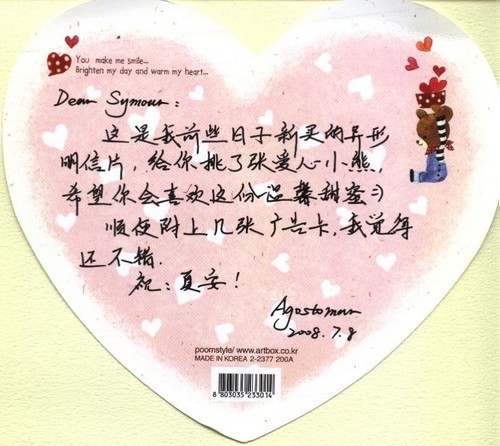 You make me smile...
Brighten my day and warm my heart...
Dear Symour:
这是我前些日子新买的异形
明信片，给你挑了张爱心小熊，
希望你会喜欢这份温馨甜蜜:)
顺便附上几张广告卡，我觉得
还不错.
祝：夏安！
Agostoman
2008.7.8
poomstyle/ www.artbox.co.kr
MADE IN KOREA 2-2377 200A
8 803035 233014